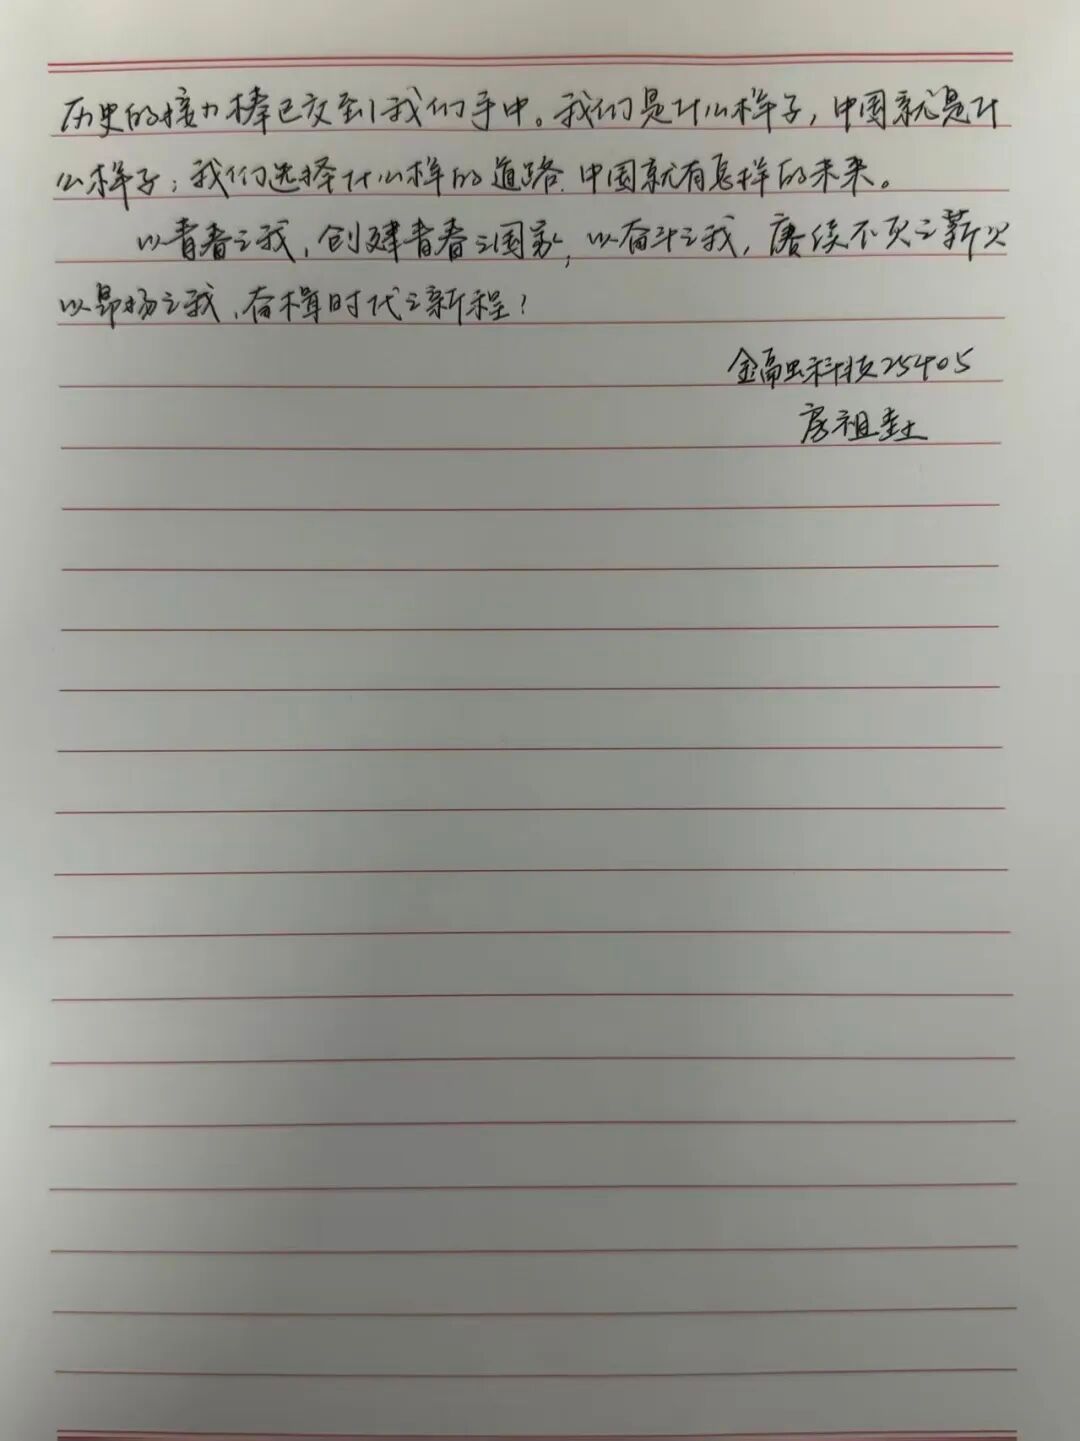 历史的接力棒已交到我们手中。我们是什么样子，中国就是什
么样子；我们选择什么样的道路，中国就有怎样的未来。
以青春之我，创建青春之国家，以奋斗之我，赓续不灭之薪火
以昂扬之我，奋楫时代之新程！
金融科技25405
房祖